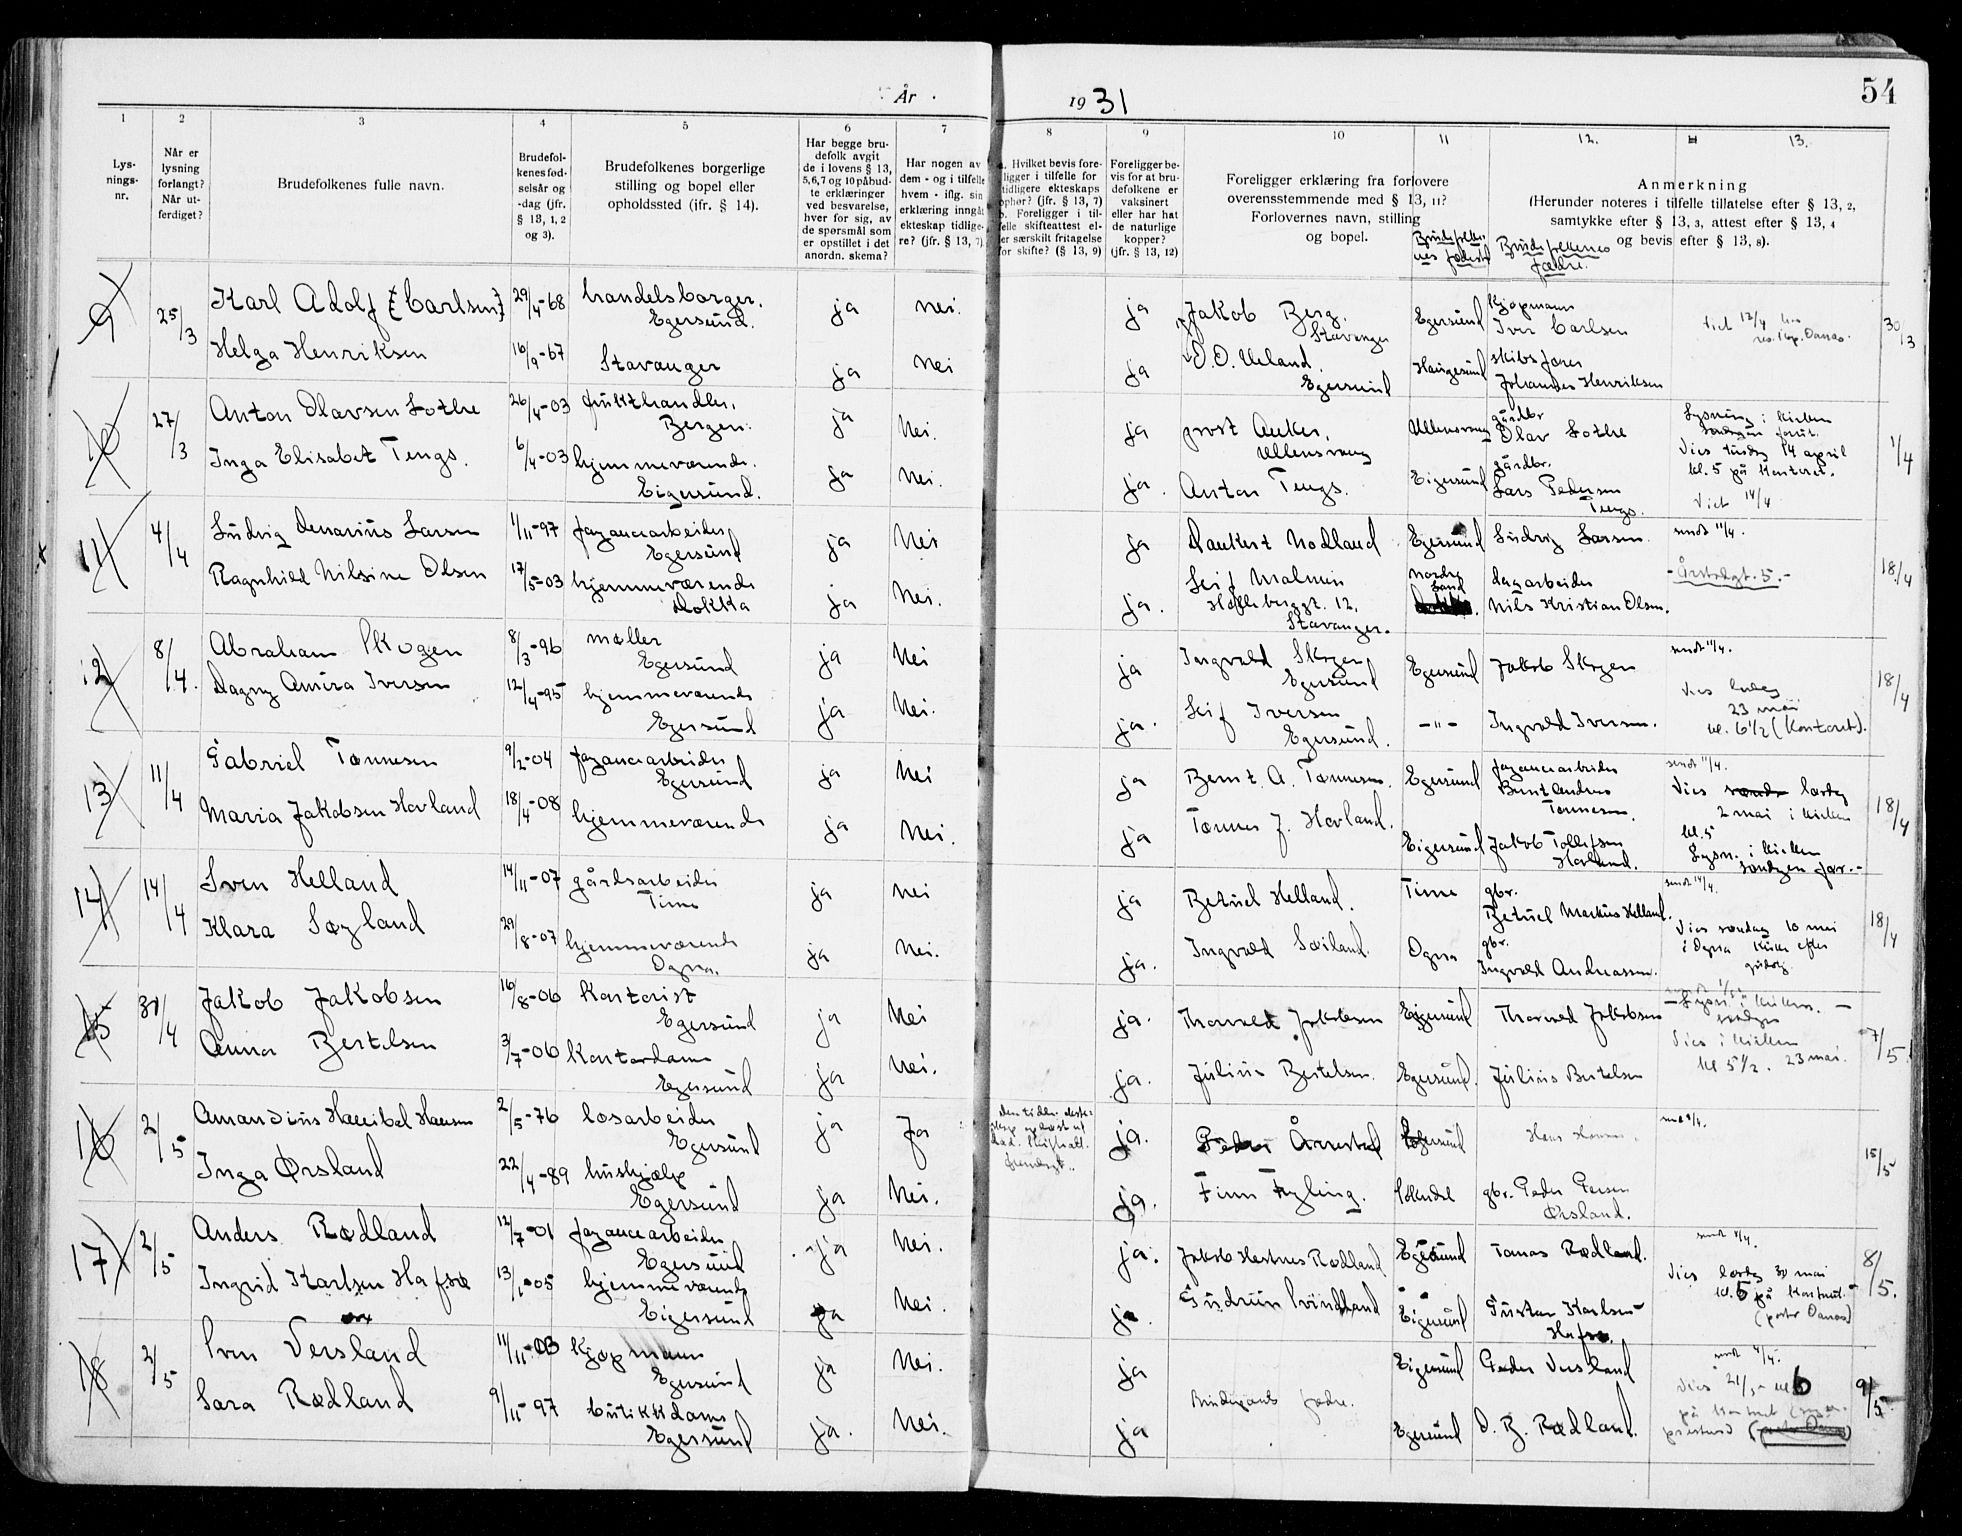 54
År 1931
1 2 3 4 5 6 7 8 9 10 11 12. 13.
Lys-
nings-
nr.
Når er
lysning
forlangt?
Når ut-
ferdiget?
Brudefolkenes fulle navn.
Brudefol-
kenes fød-
selsår og
-dag (jfr.
§ 13, 1, 2
og 3).
Brudefolkenes borgerlige
stilling og bopel eller
opholdssted (ifr. § 14).
Har begge bru-
defolk avgit
de i lovens § 13,
5,6,7 og 10 påbud-
te erklæringer
ved besvarelse,
hver for sig, av
de spørsmål som
er opstillet i det
anordn. skema?
Har nogen av
dem - og i tilfelle
hvem - iflg. sin
erklæring inngåt
ekteskap tidlige-
re? (jfr. § 13, 7)
a. Hvilket bevis fore-
ligger i tilfelle for
tidligere ekteskaps
ophør? (jfr. § 13, 7)
b. Foreligger i til-
felle skifteattest el-
ler særskilt fritagelse
for skifte? (§ 13, 9)
Foreligger be-
vis for at bru-
defolkene er
vaksinert
eller har hat
de naturlige
kopper?
(jfr. § 13, 12)
Foreligger erklæring fra forlovere
overensstemmende med § 13, 11?
Forlovernes navn, stilling
og bopel.
Brudefolke-
nes fødested
Brudefolkenes
fædre.
Anmerkning
(Herunder noteres i tilfelle tillatelse efter § 13, 2,
samtykke efter § 13, 3, attest efter § 13, 4
og bevis efter § 13, 8).
9 25/3 Karl Adolf {Carlsen} 29/4-68 handelsborger. Egersund. ja nei. ja Jakob Berg. Stavanger Egersund Kjøpmann Iver Carlsen Viet 12/4 30/3
Helga Henriksen 16/9-67 Stavanger ja nei ja O.O. Ueland. Egersund Haugesund skibsfører Johannes Henriksen
10 27/3 Anton Olavsen Lothe 26/4-03 frukthandler. Bergen. ja Nei. ja prost Anker, Ullensvang Ullensvang gårdbr Olav Lothe Lysning i kirken søndagen forut. 1/4
Inga Elisabet Tengs. 6/4-03 hjemmeværende. Eigersund. ja Nei. ja. Anton Tengs. Eigersund gårdbr. Lars Pedersen Tengs. Vies tirsdag 14 april kl. 5 på kontoret. Viet 14/4
11 4/4 Ludvig Denarius Larsen 1/11-97 fayancearbeider Egersund ja Nei ja Dankert Nodland Egersund Ludvig Larsen sendt 11/4. 18/4
Ragnhild Nilsine Olsen 17/5-03 hjemmeværende Dokka ja Nei. ja. Leif Malmin 12, Stavanger. Nordre Land dagarbeider Nils Kristian Olsen.
12 8/4. Abraham Skogen 8/3-96 møller Egersund ja Nei ja Ingvald Skogen Egersund Egersund Jakob Skogen sendt 11/4. 18/4
Dagny Amira Iversen 12/4-95 hjemmeværende Egersund ja Nei. ja. Leif Iversen Egersund. -"- Ingvald Iversen. Vies lørdag 23 mai kl. 6½ (kontoret).
13 11/4 Gabriel Tønnesen 9/2-04 fayancearbeider Egersund ja Nei ja Bernt A. Tønnesen. Egersund fayancearbeider Bernt Andreas Tønnesen. sendt 11/4. Vies lørdag 2 mai i kirken kl. 5 18/4
Maria Jakobsen Hovland 18/4-08 hjemmeværende ja Nei. ja Tønnes J. Hovland. Eigersund Jakob Tollefsen Hovland. Lysn. i kirken søndagen før.-
14 14/4 Sven Helland 14/11-07 gårdsarbeider Time ja Nei ja Betuel Helland. Time gbr. Betuel Markus Helland. sendt 14/4. 18/4
Klara Søyland 29/8-07 hjemmeværende Ogna. ja Nei. ja. Ingvald Søiland. Ogna gbr. Ingvald Andreassen. Vies søndag 10 mai i Ogna kirke efter gudstj.
15 30/4 Jakob Jakobsen 16/8-06 Kontorist Egersund ja Nei ja. Thorvald Jakobsen Egersund Thorvald Jakobsen Lysn. i kirken. søndagen 7/5
Anna Bertelsen 3/7-06 Kontordame Egersund ja Nei. ja. Julius Bertelsen. Egersund. Julius Bertelsen Vies i kirken kl 5½. 23 mai.
16 2/5 Amandius Hannibal Hansen 2/5-76 løsarbeider Egersund ja Ja ja. Peder Årrestad Egersund Hans Hansen. 15/5
Inga Ørsland 22/4-89 hushjælp Egersund ja Nei. ja. Finn Fyling. gbr. Peder Ørsland.
17 2/5 Anders Rødland 12/7-01 fayancearbeider Egersund ja Nei. ja. Jakob Rødland Egersund Tønnes Rødland. 8/5.
Ingrid Karlsen Hafsøe 13/1-05 hjemmeværende Eigersund ja Nei. ja. Gudrun Svindland Eigersund Gustav Karlsen Hafsøe. Vies lørdag 30 mai kl. 5 på kontoret.
18 2/5 Sven Versland 11/11-03 Kjøpmann Egersund ja Nei. ja Eigersund Peder Versland 9/5
Sara Rødland 9/11-97 butikkdame Egersund ja. Nei. ja Brudeparets fedre. Egersund O. B. Rødland. Vies 21/5 kl 6 på kontoret